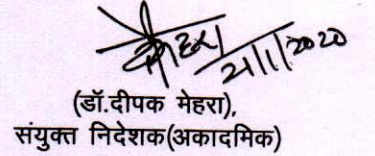 21/1/2020
(डॉ.दीपक मेहरा),
संयुक्त निदेशक(अकादमिक)